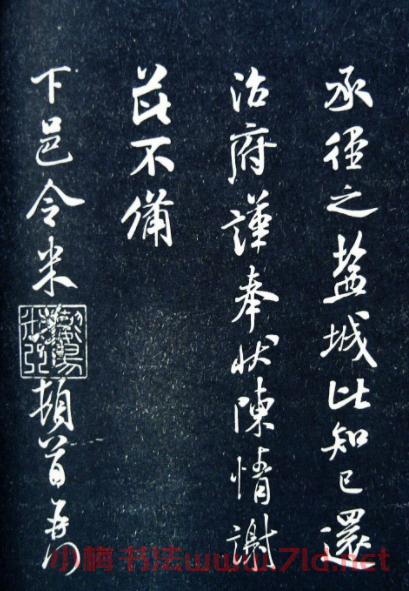 承徑之鹽城比知已還
治府謹奉狀陳情謝
茲不備
下邑令米
頓首再
小楠书法www.7ld.net